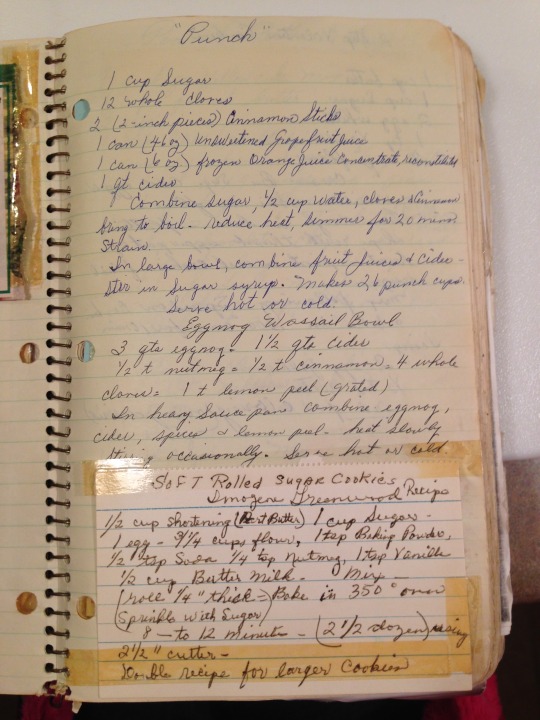 "Punch"
1 cup Sugar
12 whole cloves
2 (2-inch pieces) Cinnamon Sticks
1 can (46 oz) Unsweetened Grapefruit Juice
1 can (6 oz) frozen Orange Juice Concentrate, reconstituted
1 qt cider
Combine Sugar, 1/2 cup Water, cloves & Cinnamon
bring to boil - reduce heat, Simmer for 20 mins
Strain.
In large bowl, combine fruit juices & Cider -
Stir in Sugar syrup. Makes 26 punch cups.
Serve hot or cold.
Eggnog Wassail Bowl
3 qts eggnog - 1 1/2 qts cider
1/2 t nutmeg = 1/2 t cinnamon = 4 whole
cloves = 1 t lemon peel (grated)
In heavy Sauce pan combine eggnog,
cider, spices & lemon peel - heat slowly
stirring occasionally. Serve hot or cold.
SOFT Rolled Sugar Cookies
Imozene Greenwood Recipe
1/2 cup Shortening (Part Butter) 1 cup Sugar -
1 egg - 3 1/4 cups flour, 1 tsp Baking Powder,
1/2 tsp Soda 1/4 tsp Nutmeg, 1 tsp Vanilla
1/2 cup Butter Milk - Mix -
(roll 1/4" thick = Bake in 350° oven
(Sprinkle With Sugar)
8 - to 12 minutes - (2 1/2 dozen) using
2 1/2" cutter -
Double recipe for larger Cookies